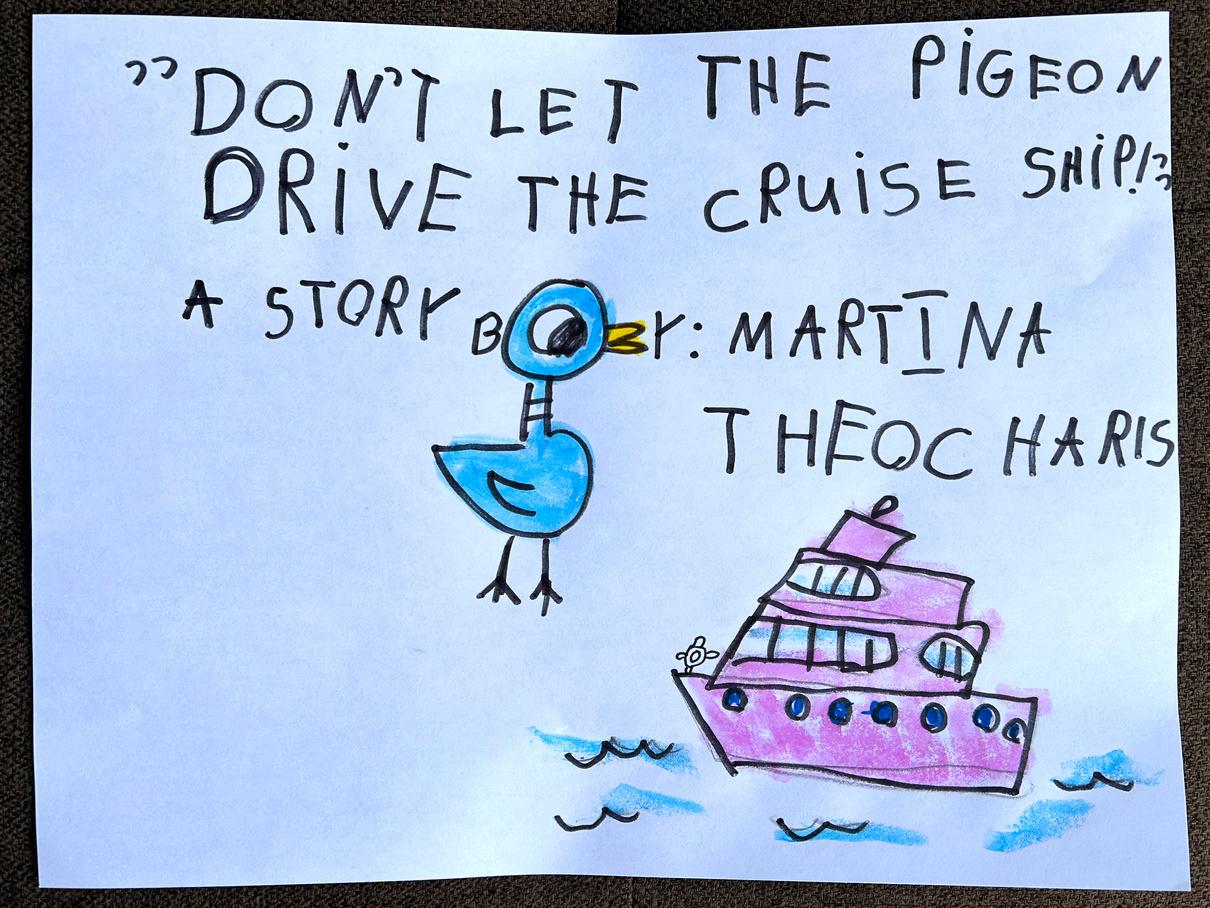 ”DON'T LET THE PiGEON
DRiVE THE CRUiSE SHiP!”
A STORY BY: MARTINA
THEOCHARIS